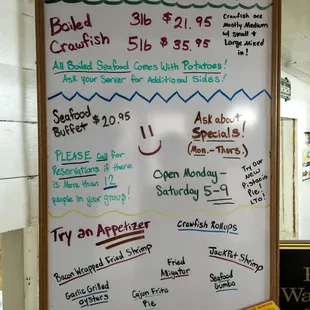 Boiled
Crawfish
3lb $21.95
5lb $35.95
Crawfish are
Mostly Medium
w/ Small +
Large Mixed
in!
All Boiled Seafood Comes With Potatoes!
Ask your Server for Additional Sides!
Seafood
Buffet $20.95
Ask about
Specials!
(Mon.-Thurs.)
PLEASE call for
Reservations if there
is More than 12
people in your group!
Open Monday -
Saturday 5-9
Try our
New
Pistacio
Pie
LTO!
Try an Appetizer
Crawfish Rollups
Bacon Wrapped Fried Shrimp
Fried
Alligator
JackPot Shrimp
Garlic Grilled
oysters
Cajun Frito
Pie
Seafood
Gumbo